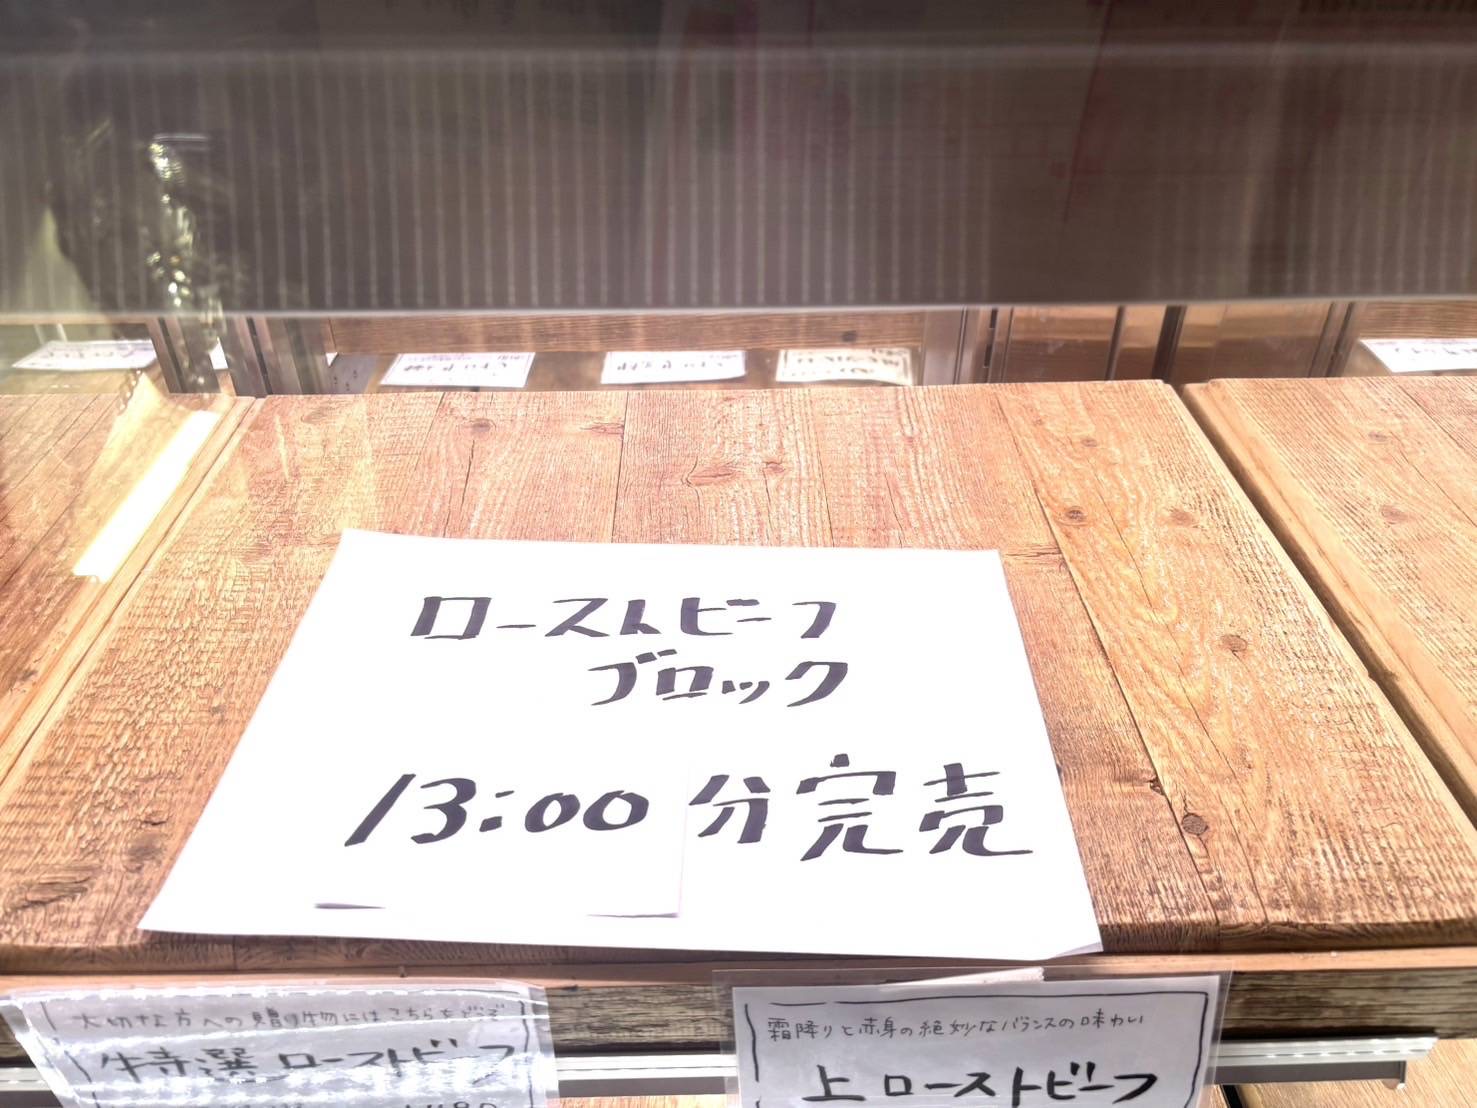 ローストビーフ
ブロック
13:00分完売
大切な方への贈り物にはこちらをどうぞ
特選 ローストビーフ
霜降りと赤身の絶妙なバランスの味わい
上ローストビーフ